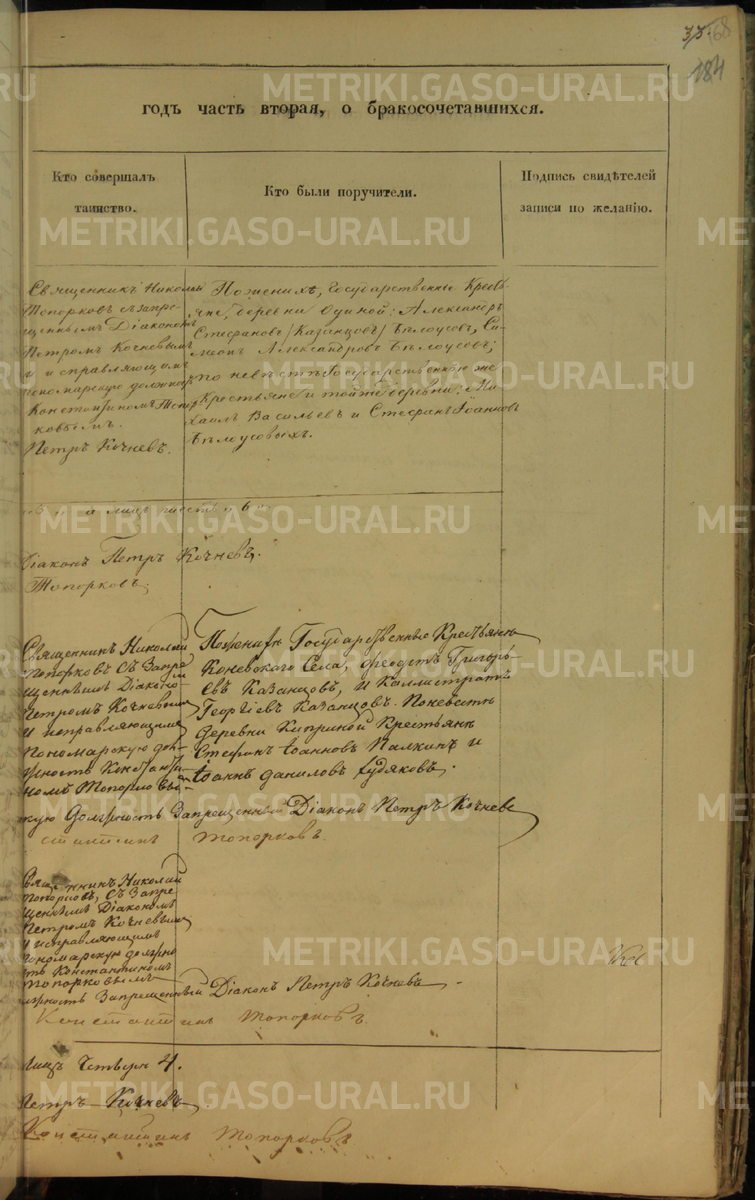 33.
168
184
годъ часть вторая, о бракосочетавшихся.
Кто совершалъ
таинство.
Кто были поручители.
Подпись свидѣтелей
записи по желанію.
Священникъ Николай
Топорковъ съ запре-
щеннымъ Діакономъ
Петромъ Кочневымъ
и исправляющимъ
пономарскую должность
Константиномъ Топор-
ковымъ.
Петръ Кочневъ.
По женихѣ, Государственные Кресть-
яне, деревни Одиной: Александръ
Стефановъ (Казанцовъ) Бѣлоусовъ, Си-
меонъ Александровъ Бѣлоусовъ;
по невѣстѣ Государственные же
Крестьяне и той же деревни: Ми-
хаилъ Васильевъ и Стефанъ Іоанновъ
Бѣлоусовыхъ.
лицъ шесть 6
Діаконъ Петръ Кочневъ.
Топорковъ.
Священникъ Николай
Топорковъ съ Запре-
щеннымъ Діаконо-
Петромъ Кочневымъ
и исправляющимъ
Пономарскую дол-
жность Константи-
номъ Топорковы-
По женихѣ Государственные Крестьяне
Коневскаго Села, Ѳеодотъ Григорь-
евъ Казанцовъ, и Каллистратъ
Георгіевъ Казанцовъ. По невѣстѣ
деревни Киприной Крестьяне
Стефанъ Іоанновъ Палкинъ и
Іоаннъ Даниловъ Худяковъ.
кую Должность Запрещенный Діаконъ Петръ Кочневъ
стантинъ Топорковъ.
Священникъ Николай
Топорковъ, съ Запре-
щеннымъ Діакономъ
Петромъ Кочневымъ
и исправляющимъ
пономарскую должно
сть Константиномъ
Топорковымъ
лжность Запрещенный Діаконъ Петръ Кочневъ.
Константинъ Топорковъ.
лицъ Четыре 4.
Петръ Кочневъ.
Константинъ Топорковъ
METRIKI.GASO-URAL.RU